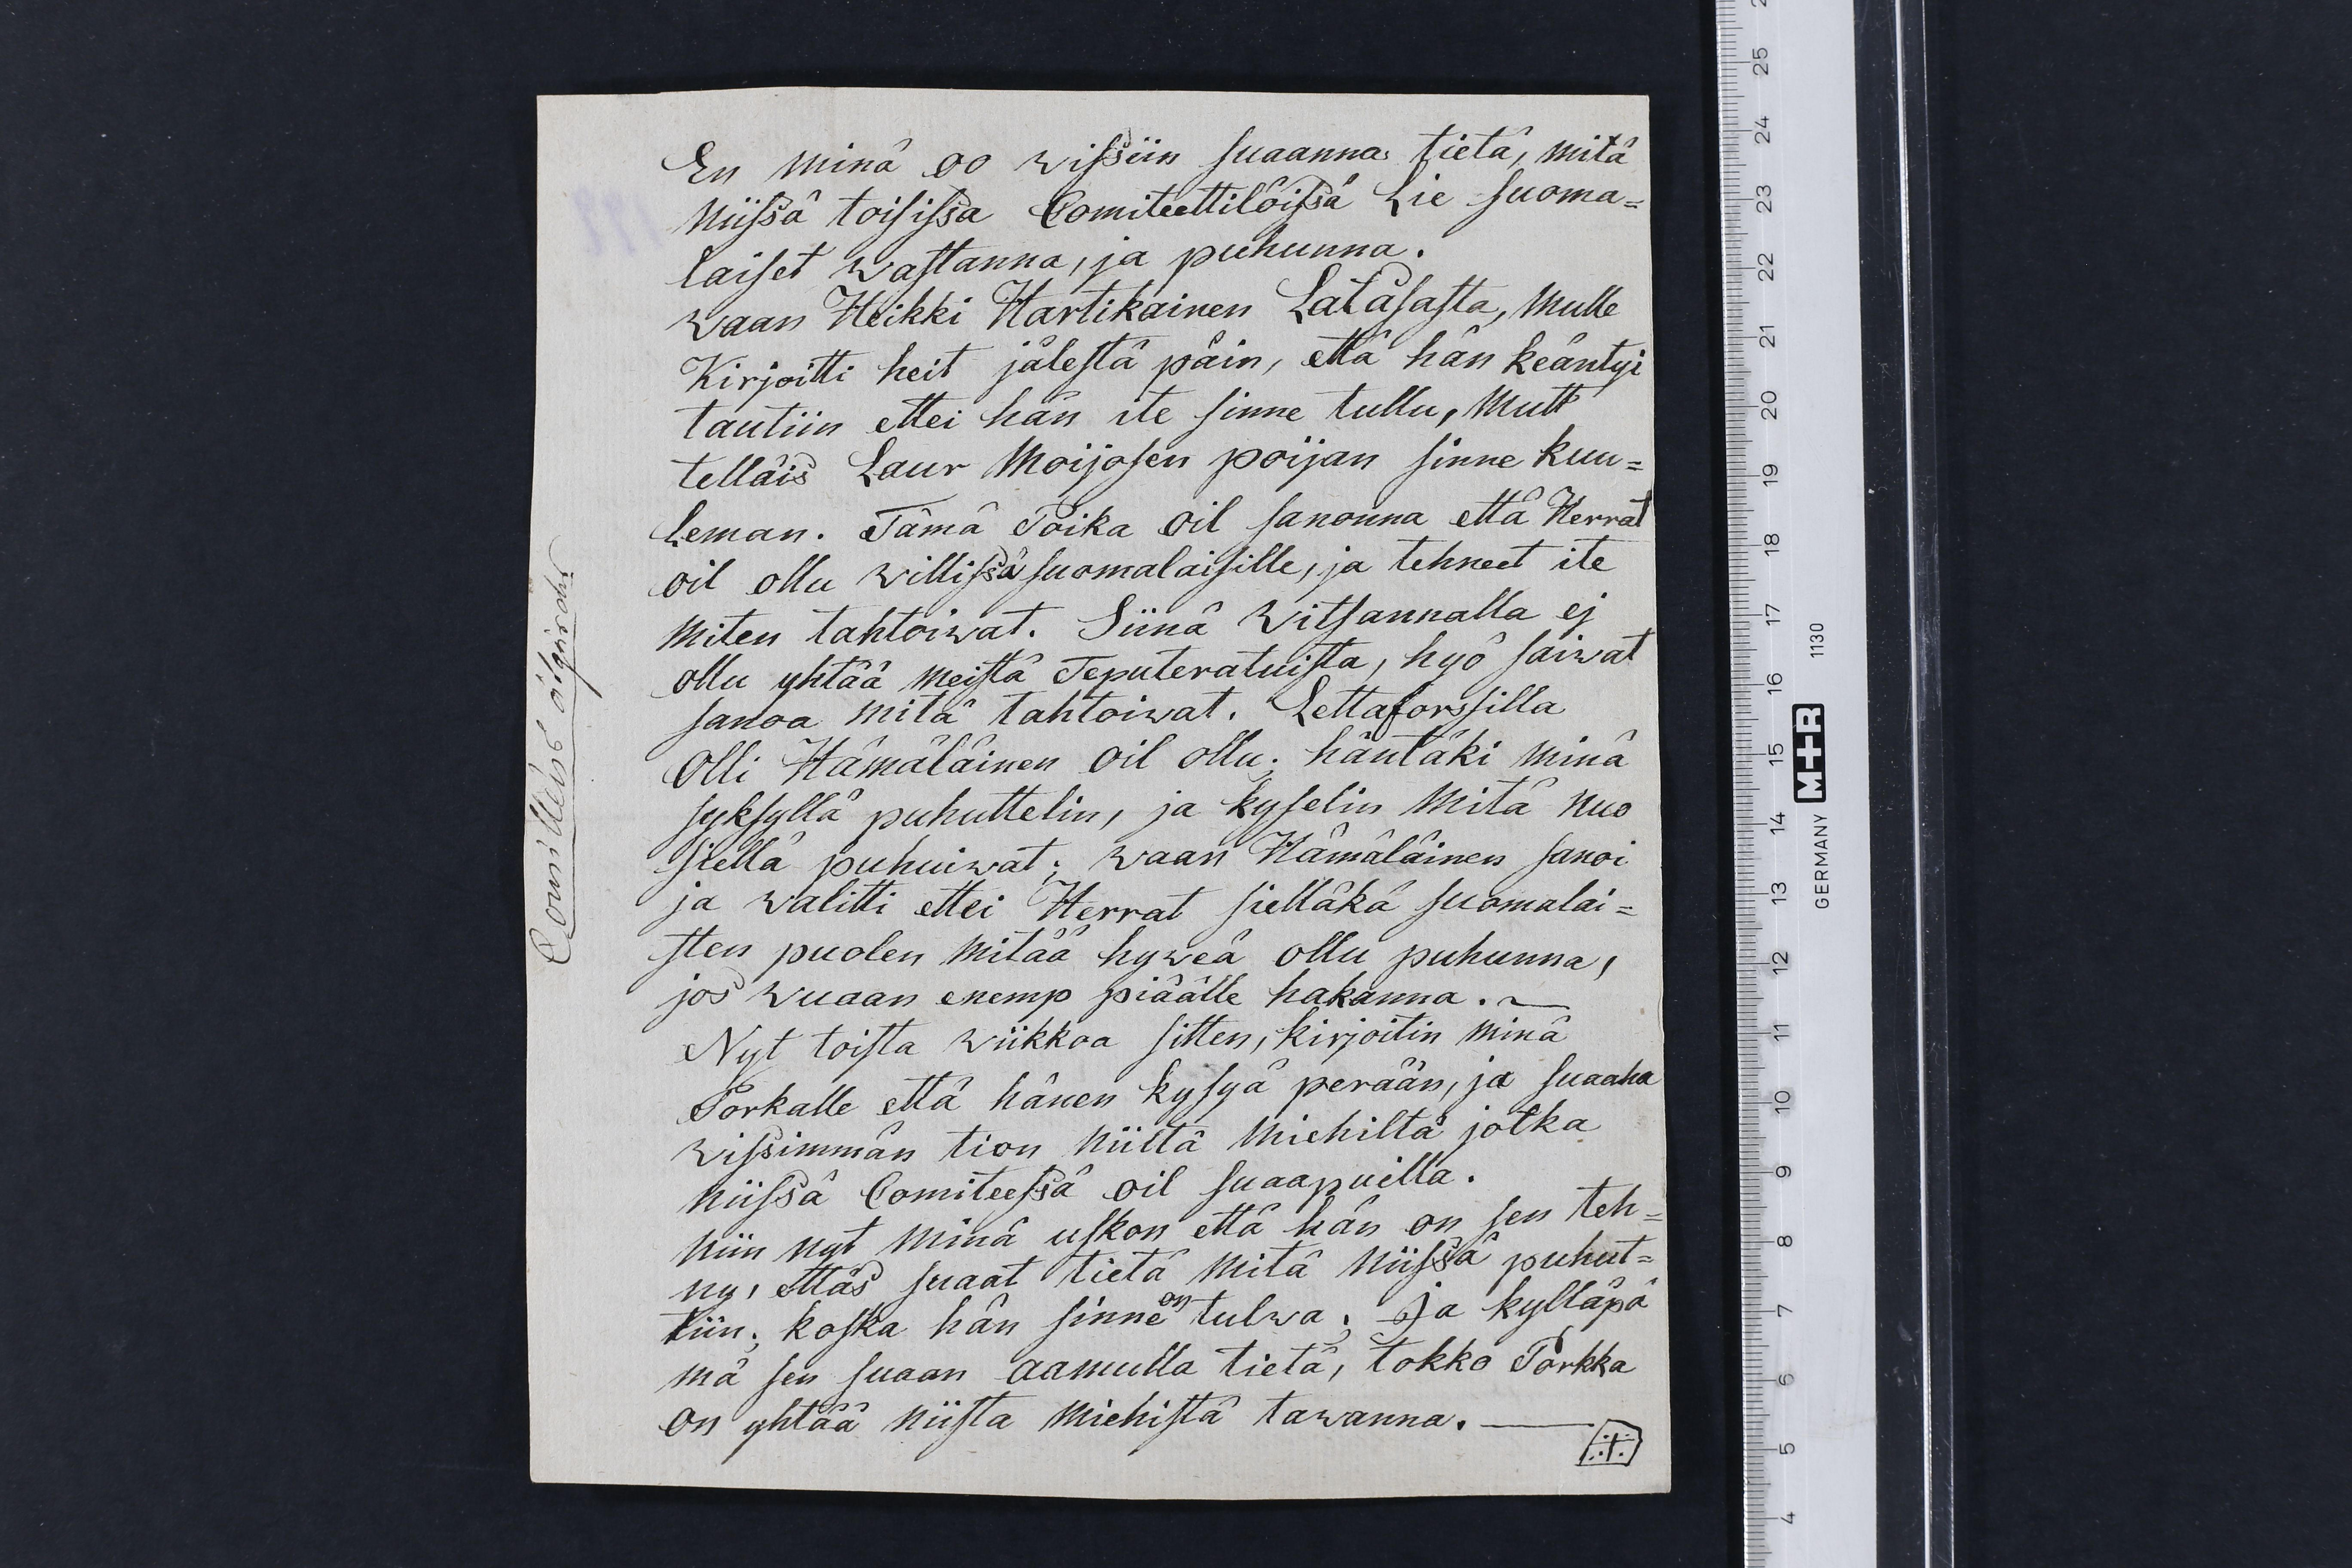 En minä oo wissiin suaanna tietä, mitä
niissä toisissa Comiteettilöissä Lie suoma=
laiset wastanna, ja puhunna.
waan Heikki Hartikainen Latåsasta, mulle
Kirjoitti heit jälestä päin, että hän keäntyi
tautiin ettei hän ite sinne tullu, mutt
telläis Laur Moijosen poijan sinne kuu=
leman. Tämä Poika oil sanonna että Herrat
oil ollu willissä suomalaisille, ja tehneet ite
miten tahtoiwat. Siinä Witsannalla ej
ollu yhtää meistä Teputeratuista, hyö saiwat
sanoa mitä tahtoiwat. Lettaforssilla
Olli Hämäläinen oil ollu; häntäki minä
syksyllä puhuttelin, ja kyselin mitä nuo
siellä puhuiwat; waan Hämäläinen sanoi
ja walitti ettei Herrat sielläkä suomalai=
sten puolen mitää hyweä ollu puhunna,
jos wuaan enemp piäälle hakanna. ~
Nyt toista wiikkoa sitten, kirjoitin minä
Porkalle että hänen kysyä perään, ja suaaha
wissimmän tion niiltä miehiltä jotka
niissä Comiteessä oil suaapuilla.
niin nyt minä uskon että hän on sen teh=
ny, ettäs suaat tietä mitä niissä puhut=
tiin; koska hän sinne on tulwa; Ja kylläpä
mä sen suaan aamulla tietä, tokko Porkka
on yhtää niista miehistä tawanna. —